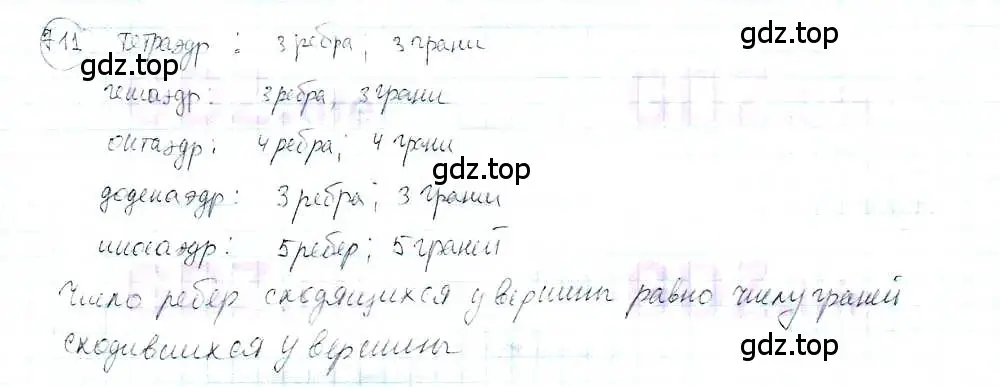 711 тетраэдр : 3 ребра; 3 грани
gdz.top gdz.top
гексаэдр: 3 ребра, 3 грани
октаэдр: 4 ребра; 4 грани
gdz.top
додекаэдр: 3 ребра; 3 грани
икосаэдр: 5 ребер; 5 граней
Число ребер сходящихся у вершины равно числу граней
сходившихся у вершины
gdz.top gdz.top